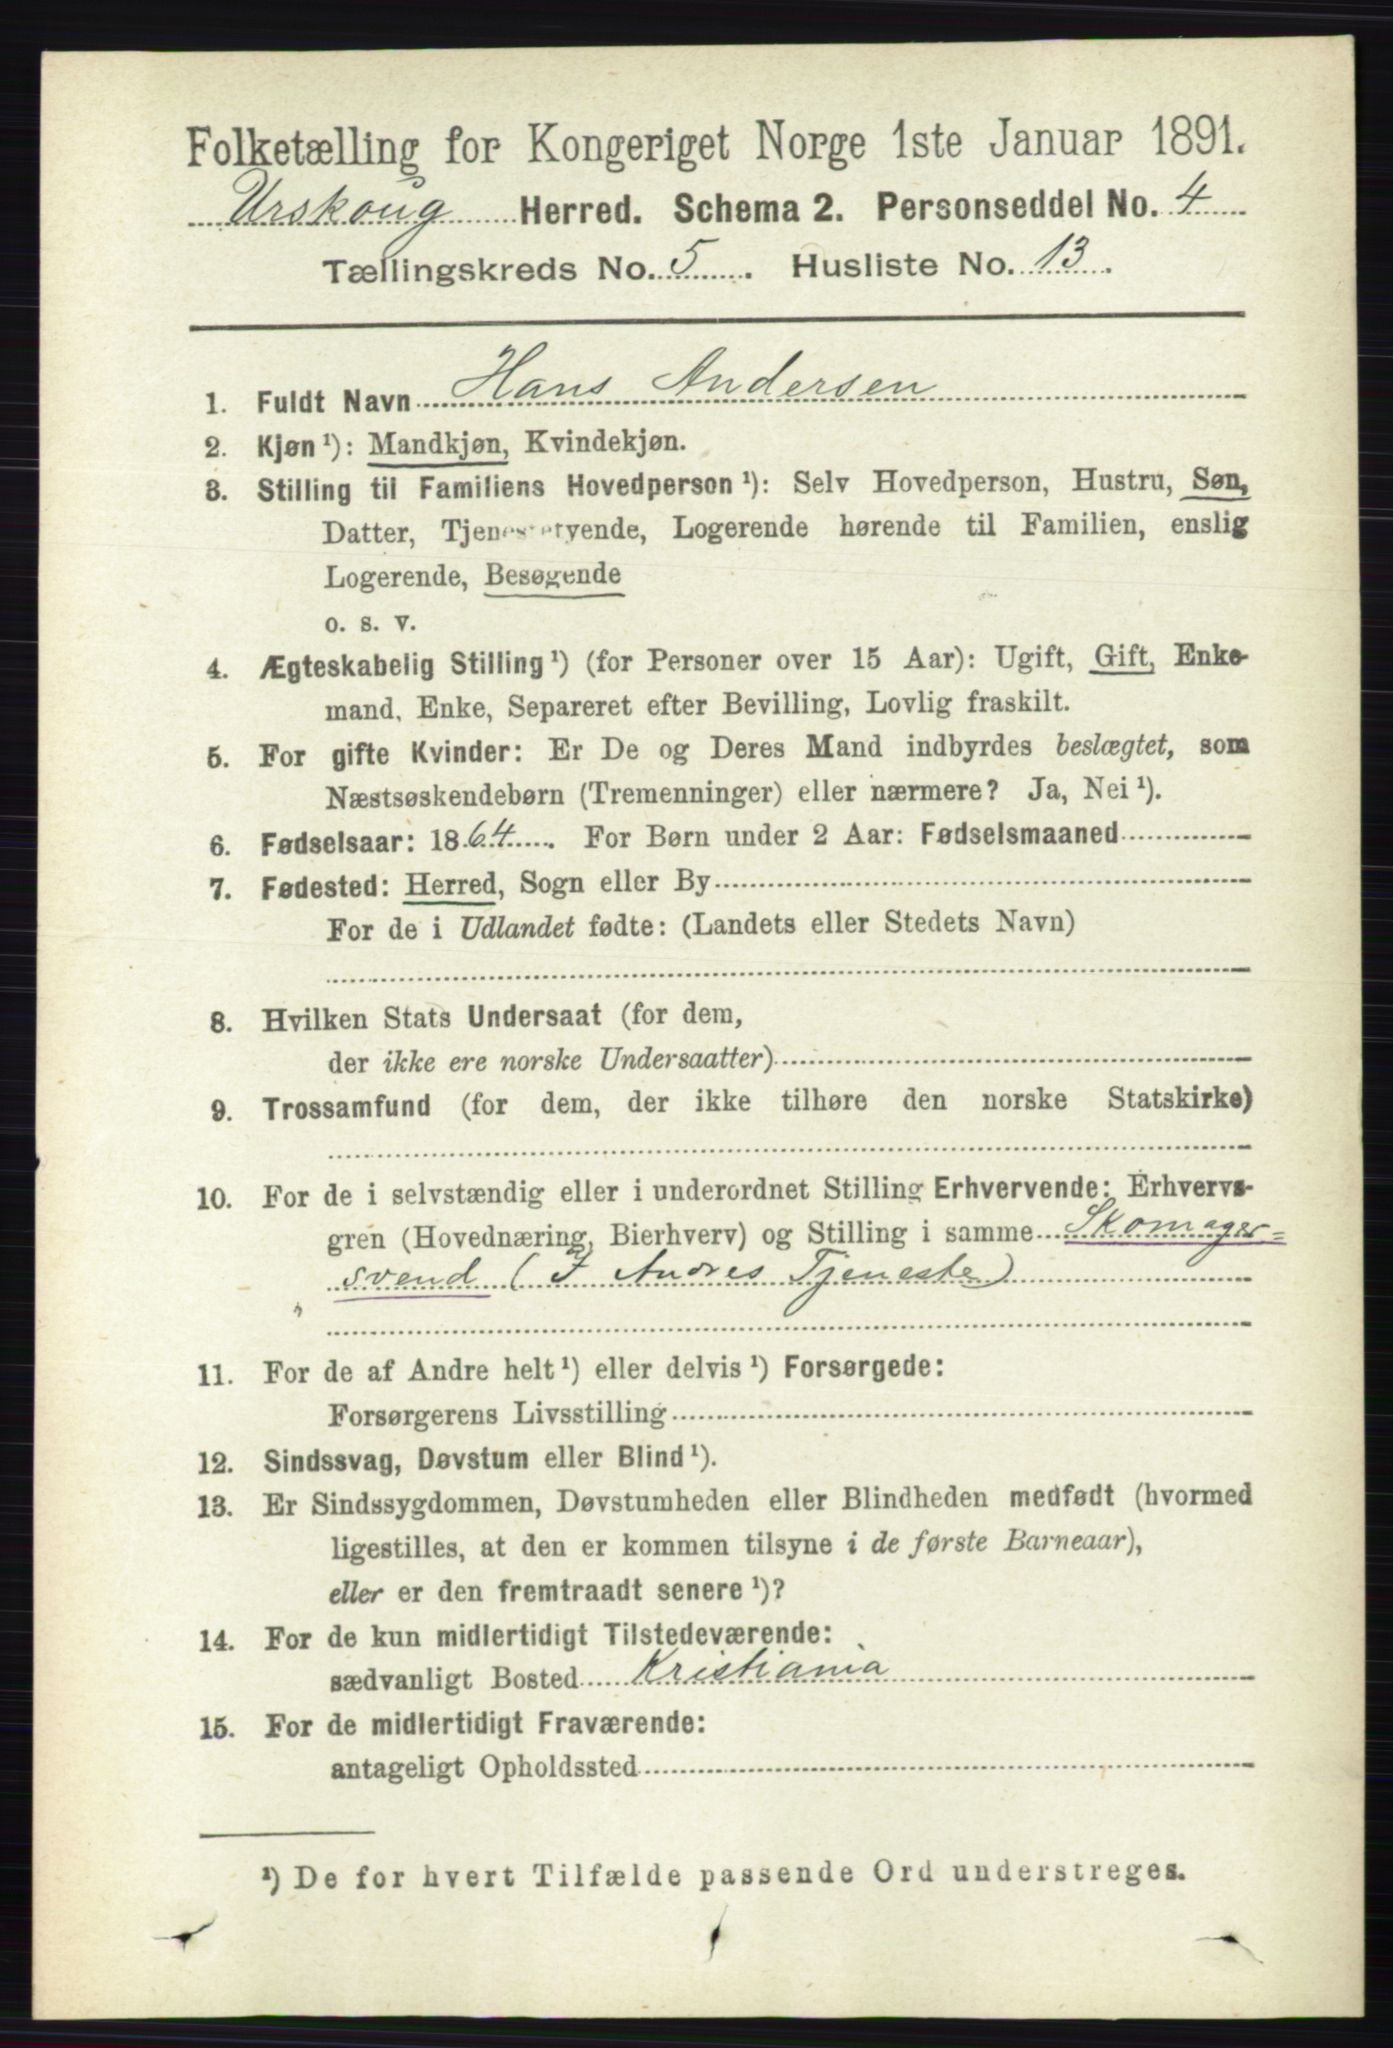 Folketælling for Kongeriget Norge 1ste Januar 1891.
Urskoug Herred. Schema 2. Personseddel No. 4
Tællingskreds No. 5. Husliste No. 13.
1. Fuldt Navn Hans Andersen
2. Kjøn ¹): Mandkjøn, Kvindekjøn.
3. Stilling til Familiens Hovedperson ¹): Selv Hovedperson, Hustru, Søn,
Datter, Tjenestetyende, Logerende hørende til Familien, enslig
Logerende, Besøgende
o. s. v.
4. Ægteskabelig Stilling ¹) (for Personer over 15 Aar): Ugift, Gift, Enke-
mand, Enke, Separeret efter Bevilling, Lovlig fraskilt.
5. For gifte Kvinder: Er De og Deres Mand indbyrdes beslægtet, som
Næstsøskendebørn (Tremenninger) eller nærmere? Ja, Nei ¹).
6. Fødselsaar: 1864. For Børn under 2 Aar: Fødselsmaaned
7. Fødested: Herred, Sogn eller By
For de i Udlandet fødte: (Landets eller Stedets Navn)
8. Hvilken Stats Undersaat (for dem,
der ikke ere norske Undersaatter)
9. Trossamfund (for dem, der ikke tilhøre den norske Statskirke)
10. For de i selvstændig eller i underordnet Stilling Erhvervende: Erhvervs-
gren (Hovednæring, Bierhverv) og Stilling i samme Skomager=
svend (I Andres Tjeneste)
11. For de af Andre helt ¹) eller delvis ¹) Forsørgede:
Forsørgerens Livsstilling
12. Sindssvag, Døvstum eller Blind ¹).
13. Er Sindssygdommen, Døvstumheden eller Blindheden medfødt (hvormed
ligestilles, at den er kommen tilsyne i de første Barneaar),
eller er den fremtraadt senere ¹)?
14. For de kun midlertidigt Tilstedeværende:
sædvanligt Bosted Kristiania
15. For de midlertidigt Fraværende:
antageligt Opholdssted
¹) De for hvert Tilfælde passende Ord understreges.